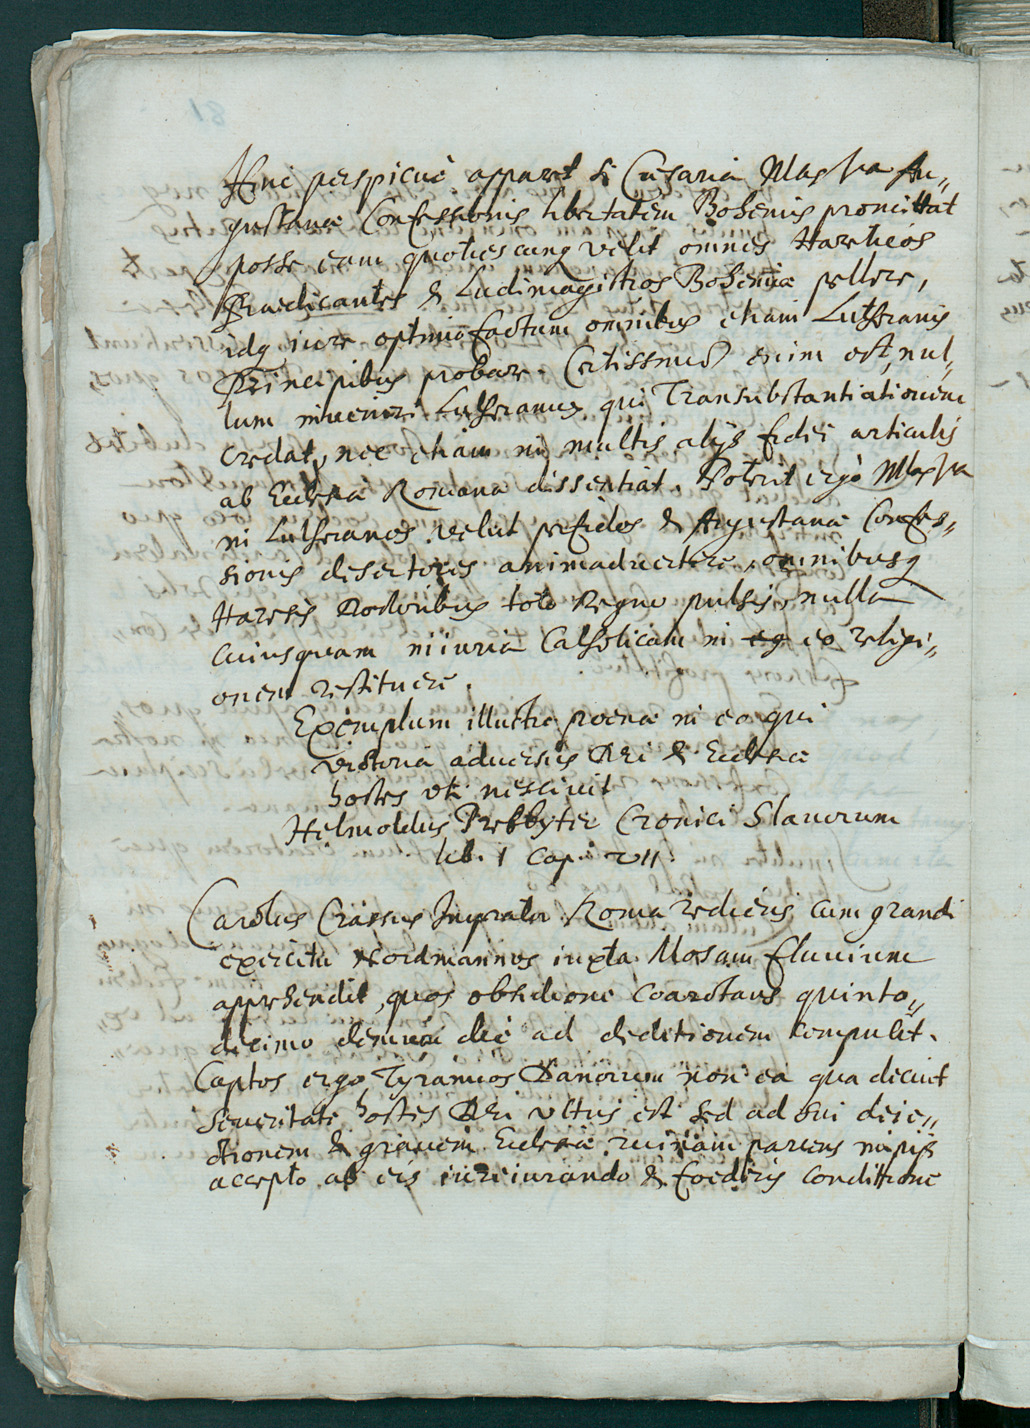 Hinc perspicuè apparet si Cæsaria Mag^tas Au„
gustanæ Confessionis libertatem Bohemis promittat
posse eam quotiescunq velit omnes Hæreticos
Prædicantes & Ludimagistros Bohemia pellere,
idq iure optimo factum omnibus etiam Lutheranis
Principibus probare. Certissimu enim est, nul„
lum inveniri Lutheranum qui Transubstantiationem
credat, nec etiam in multis alijs fidei articulis
ab Ecclesia Romana dissentiat. Poterit ergò Mag^tas
in Lutheranos velut perfidos & Augustanæ Confes„
sionis desertores animadvertere, omnibusq
Hæresis Doctoribus toto Regno pulsis, nulla
cuiusquam iniuria Catholicam in eo religi„
onem restituere.
Exemplum illustre poenæ in eo qui
victoria adversus Dei & Ecclesiæ
hostes uti nescivit
Helmoldus Presbyter Cronici Slavorum
lib. 1 Cap. VII.
Carolus Crassus Imperator Roma rediens cum grandi
exercitu Nordmannos iuxta Mosam fluvium
apprehendit, quos obsidione coarctans quinto„
decimo demum die ad deditionem compulit.
Captos ergo Tyrannos Danorum non ea qua decuit
severitate hostes Dei ultus est sed ad sui deie„
ctionem & gravem Ecclesiæ ruinam parcens impijs
accepto ab eis iureiurando & foederis conditione